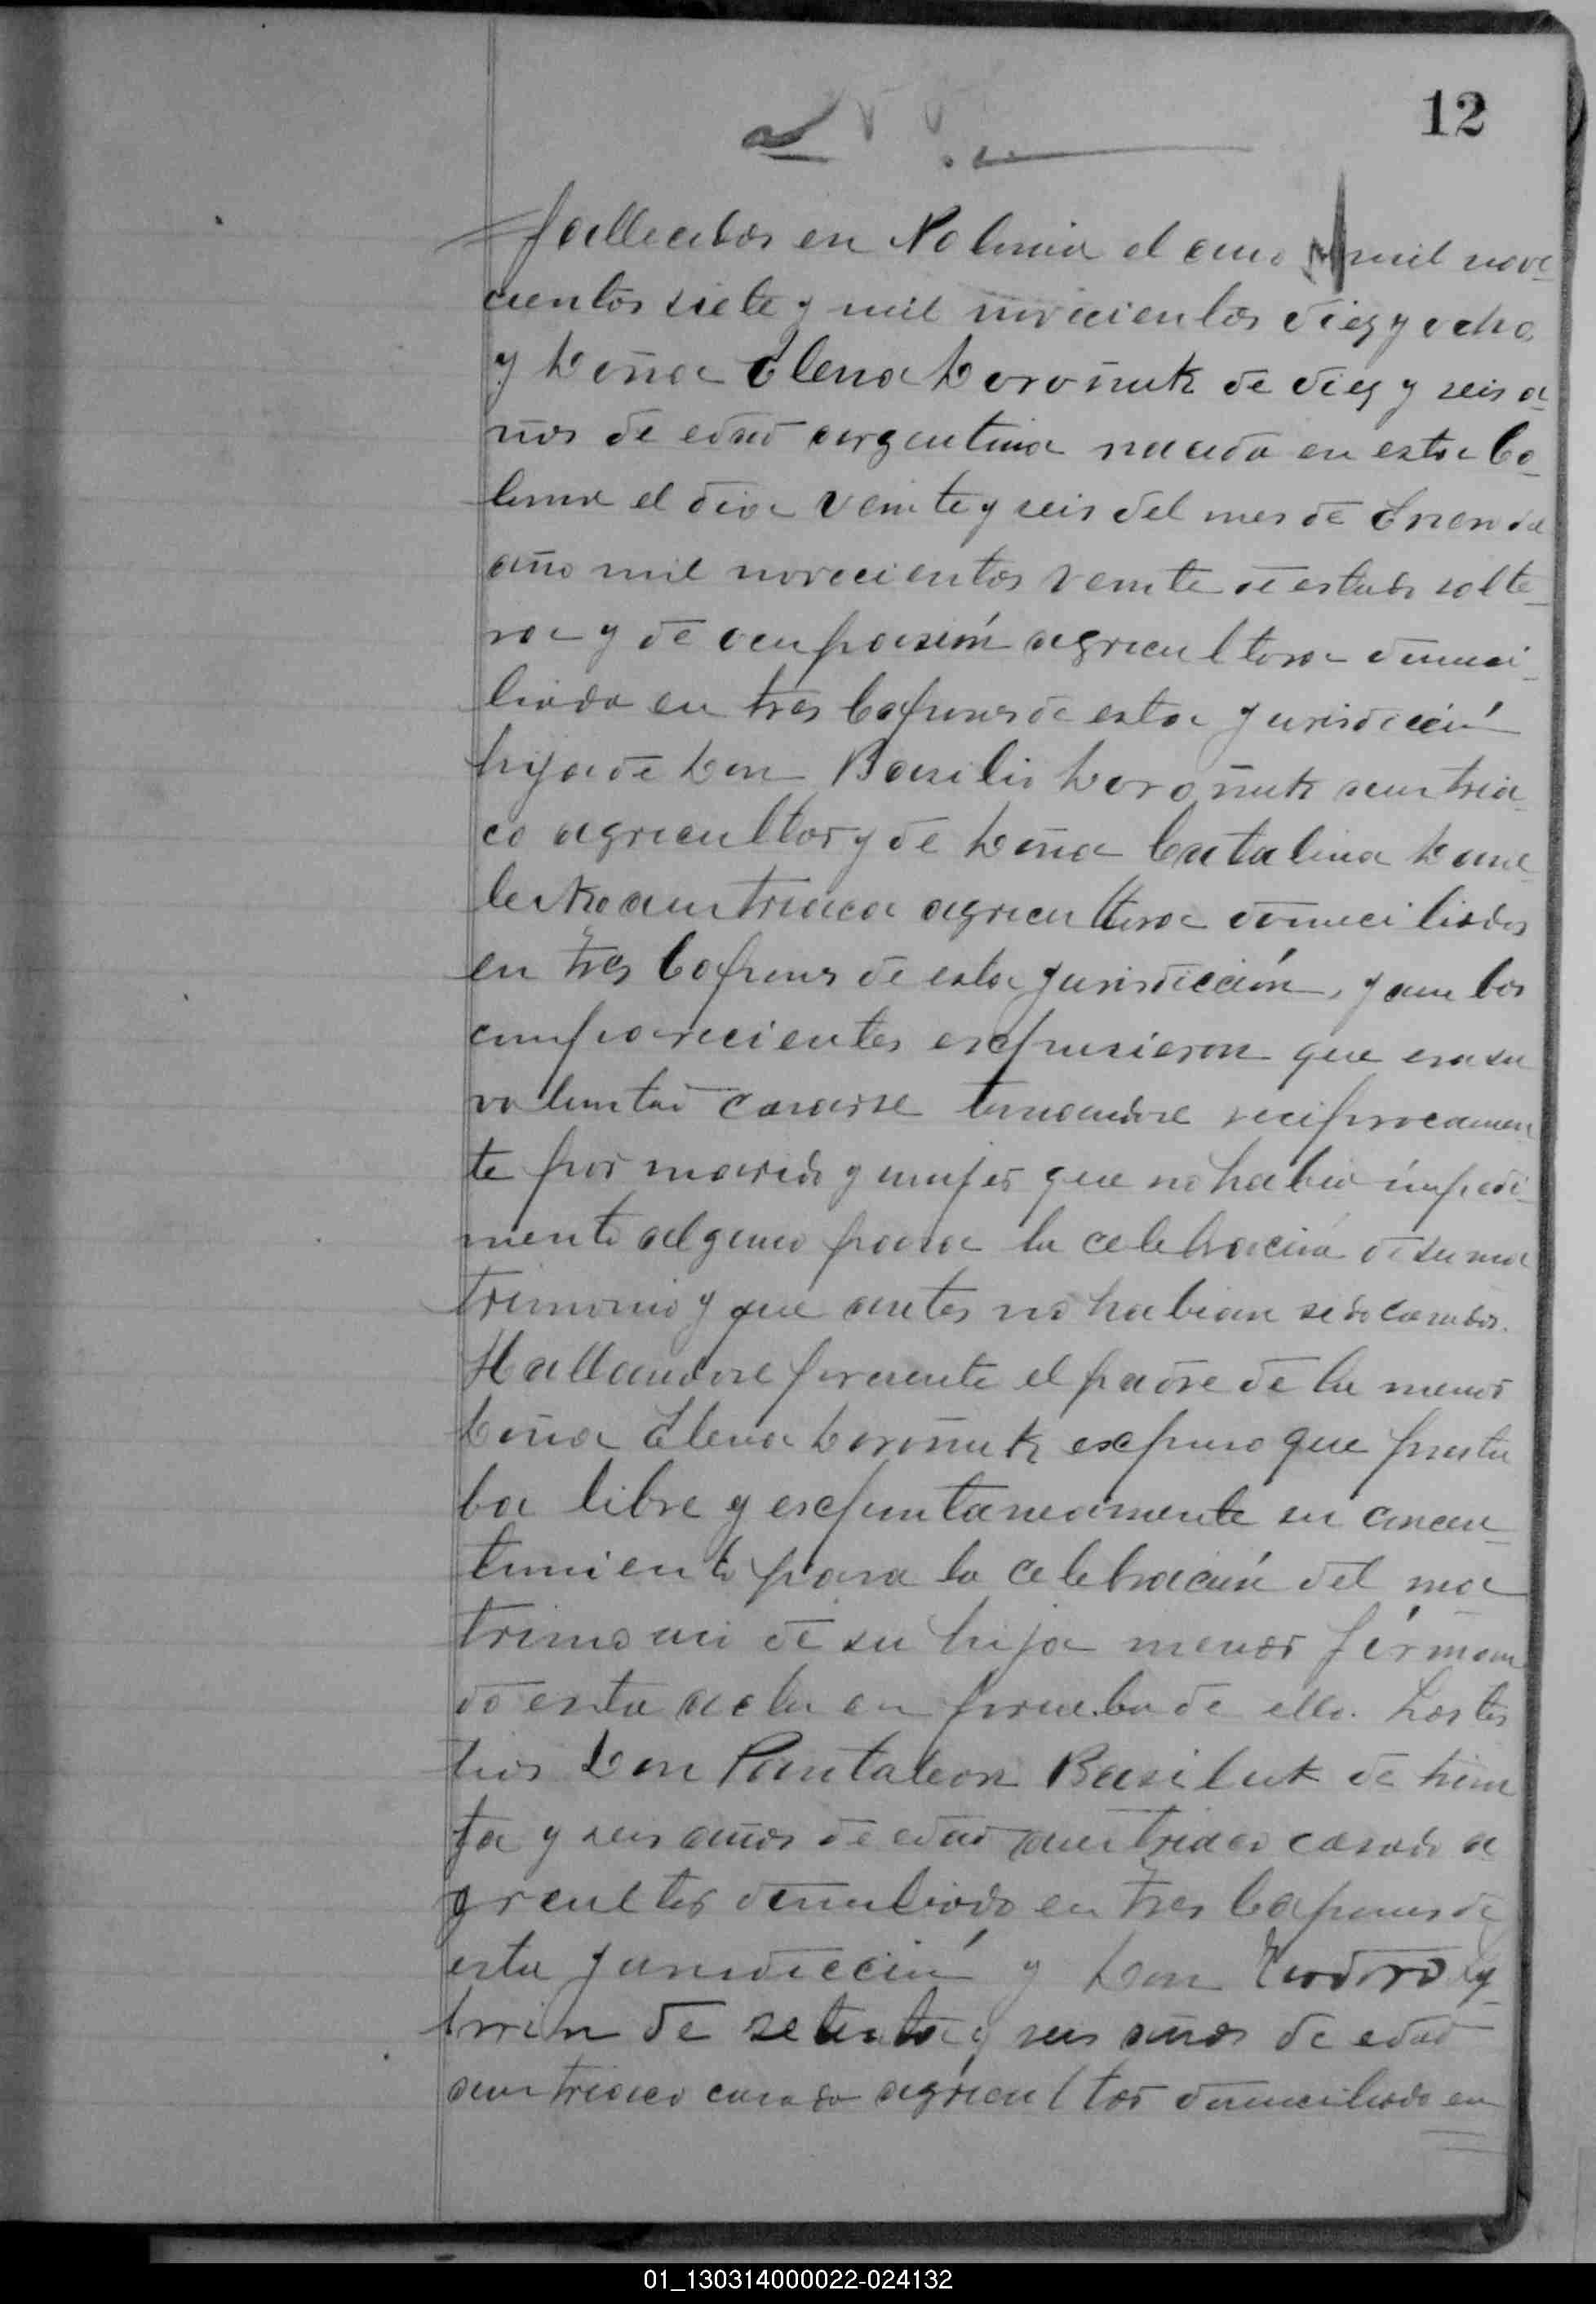 12
fallecidos en Polonia el año mil nove-
cientos siete y mil novecientos diez y ocho
y Doña Elena Doroñuk de diez y seis a-
ños de edad argentina nacida en esta Co-
lonia el dia veinte y seis del mes de Enero del
año mil novecientos veinte de estado solte-
ra y de ocupasión agricultora domici-
liada en tres Capones de esta jurisdicción
hija de Don Basilio Doroñuk austria-
co agricultor y de Doña Catalina
austriaca agricultora domiciliados
en Tres Capones de esta jurisdicción, y ambos
comparecientes expusieron que era su
voluntad casarse tomandose reciprocamen
te por marido y mujer que no habia impedi-
mento alguno para la celebración de su ma
trimonio y que antes no habian sido casados.
Hallandose presente el padre de la menor
Doña Elena Doroñuk expuso que presta
ba libre y expontaneamente su concen-
timiento para la celebración del ma
trimonio de su hija menor firman
do esta acta en prueba de ello. Los tes
tigos Don Pantaleon Basiluk de trein
ta y seis años de edad austriaco casado a-
gricultor domiciliado en Tres Capones de
esta jurisdicción y Don
de setenta y seis años de edad
austriaco casado agricultor domiciliado en
01_130314000022-024132